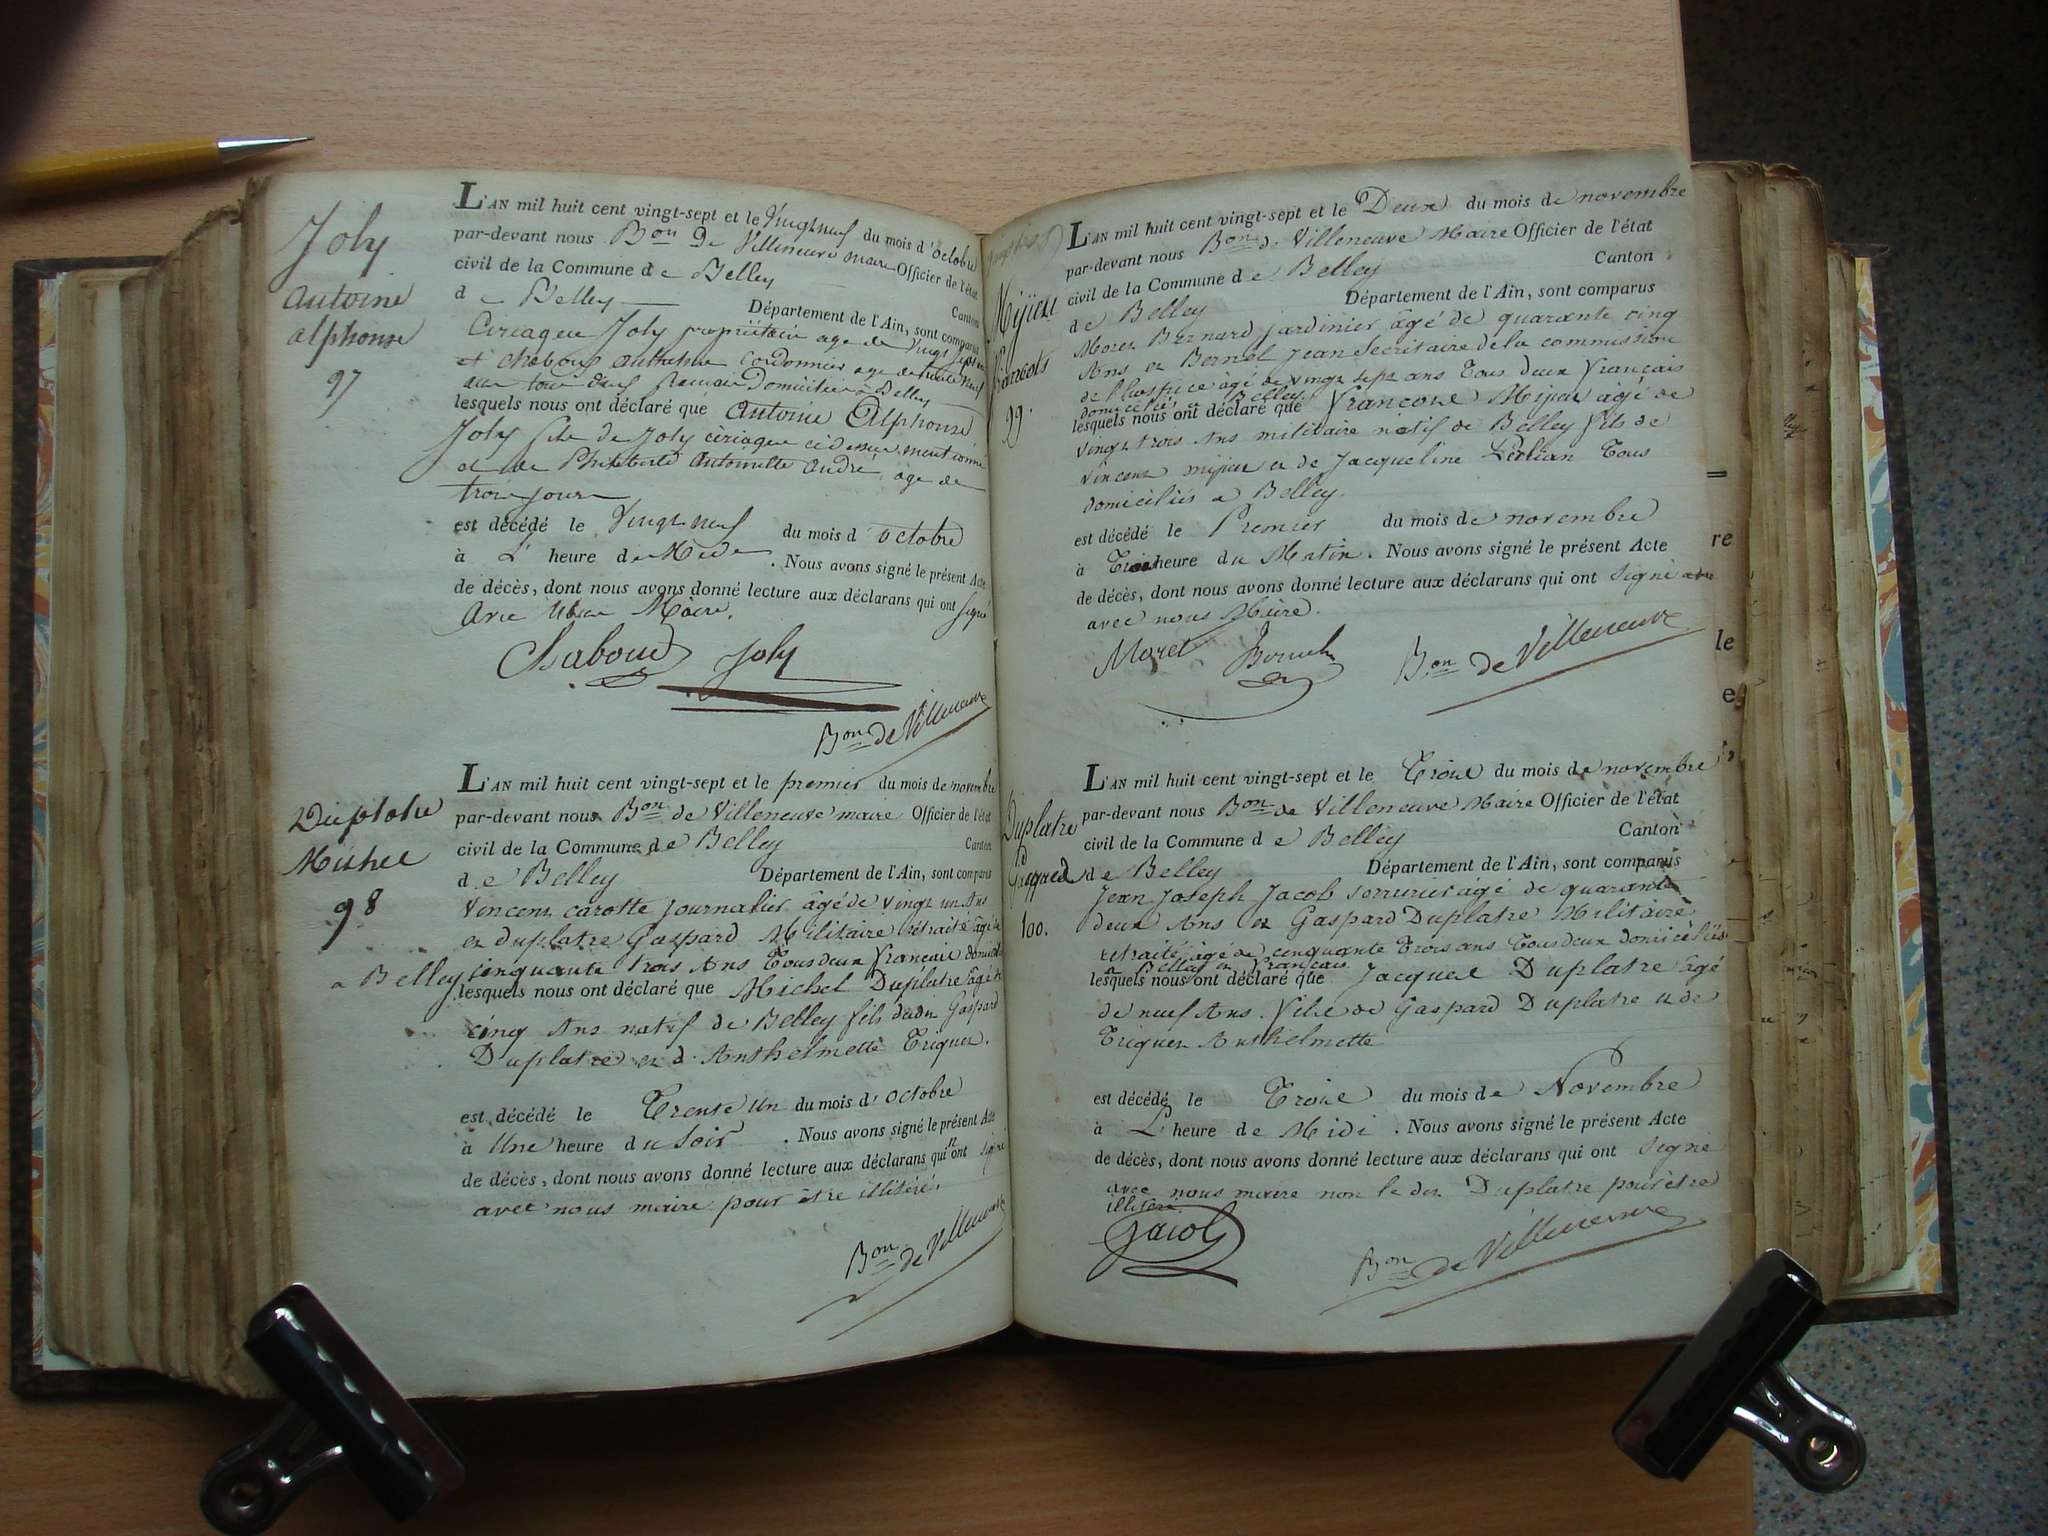 Joly
Antoine
alphonse
97
L'AN mil huit cent vingt-sept et le Vingt neuf du mois d'octobre
par-devant nous Bon De Villeneuve maire Officier de l'état
civil de la Commune de Belley Canton
de Belley Département de l'Ain, sont comparus
Ciriaque Joly propriétaire age de vingt sept
et Chaboud cordonnier age de trente neuf
tous deux Domiciliés a Belley
lesquels nous ont déclaré que Antoine Alphonse
Joly fils de Joly ciriaque ci dessus mentionné
et de Philiberte Antoinette André, age de
trois jours
est décédé le Vingt neuf du mois d'octobre
à L' heure de Midi. Nous avons signé le présent Acte
de décès, dont nous avons donné lecture aux déclarans qui ont signé
Avec Maire.
Chaboud Joly
Bon de Villeneuve
Duplatre
Michel
98
L'AN mil huit cent vingt-sept et le premier du mois de novembre
par-devant nous Bon de Villeneuve maire Officier de l'état
civil de la Commune de Belley Canton
de Belley Département de l'Ain, sont comparus
Vincent carotte journalier âgé de vingt un Ans
et duplatre Gaspard Militaire rétraité âgé de
cinquante trois Ans Tous deux français domiciliés
a Belley lesquels nous ont déclaré que Michel Duplatre âgé de
cinq Ans natif de Belley fils dudit Gaspard
Duplatre et d'Anthelmette Triquet.
est décédé le Trente un du mois d'octobre
à Une heure du Soir. Nous avons signé le présent Acte
de décès, dont nous avons donné lecture aux déclarans qui n'ont signé
avec nous maire pour être illitéré.
Bon de Villeneuve
Mijieu
François
99.
L'AN mil huit cent vingt-sept et le Deux du mois de novembre
par-devant nous Bon de Villeneuve Maire Officier de l'état
civil de la Commune de Belley Canton
de Belley Département de l'Ain, sont comparus
Morel Bernard jardinier âgé de quarante cinq
Ans et Bornet Jean Secritaire de la commission
de l'hospice âgé de vingt sept ans Tous deux français
domiciliés a Belley
lesquels nous ont déclaré que Mijeu âgé de
vingt trois Ans militaire natif de Belley fils de
Vincent mijeu et de Jacqueline Tous
domiciliés a Belley.
est décédé le Premier du mois de novembre
à Trois heure du Matin. Nous avons signé le présent Acte
de décès, dont nous avons donné lecture aux déclarans qui ont signé
avec nous Maire.
Morel Bornet Bon de Villeneuve
Duplatre
Gaspard
100.
L'AN mil huit cent vingt-sept et le Troise du mois de novembre
par-devant nous Bon de Villeneuve Maire Officier de l'état
civil de la Commune de Belley Canton
de Belley Département de l'Ain, sont comparus
Jean Joseph Jacob serrurier âgé de quarante
deux Ans et Gaspard Duplatre Militaire
retraité âgé de cinquante Trois ans Tous deux domiciliés
a Belley et français
lesquels nous ont déclaré que Jacques Duplatre âgé
de neuf Ans. Fils de Gaspard Duplatre et de
Triquet Anthelmette
est décédé le Troise du mois de Novembre
à L' heure de Midi. Nous avons signé le présent Acte
de décès, dont nous avons donné lecture aux déclarans qui ont Signé
avec nous maire non le dit Duplatre pour être
illitéré
Jacob Bon de Villeneuve
re
le